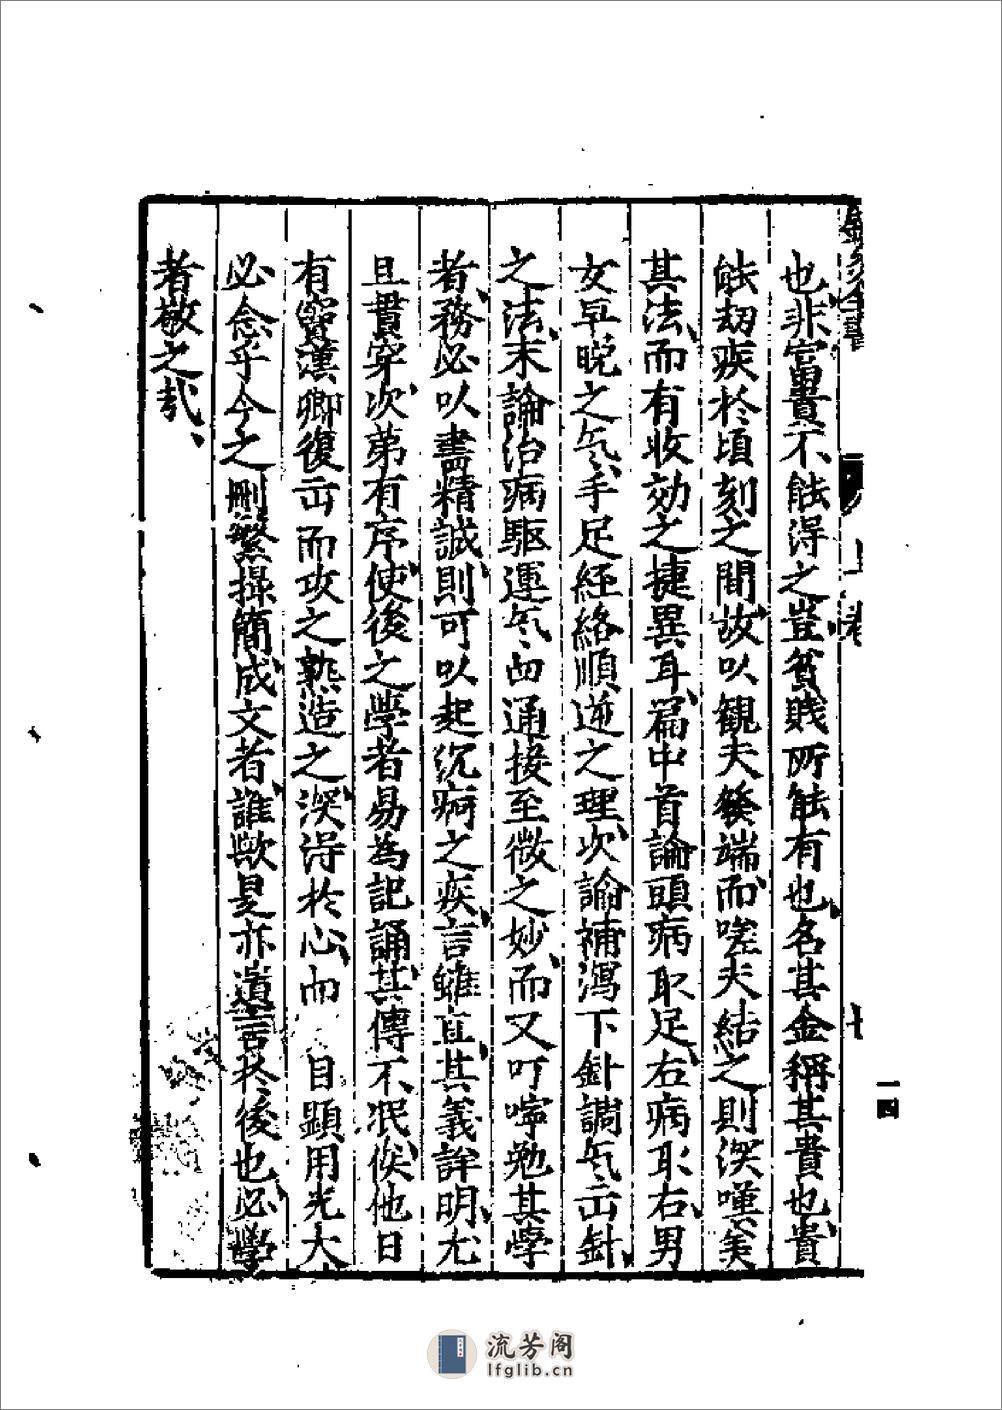 也非富貴不能得之豈貧賤所能有也名其金稱其貴也貴
能劫疾於頃刻之間故以観夫發端而嗟夫結之則深嘆美
其法而有收効之捷異耳篇中首論頭病取足右病取右男
女早晚之気手足経絡順逆之理次論補瀉下針調気出針
之法末論治病驅運気血通接至微之妙而又叮嚀勉其學
者務必以盡精誠則可以起沉痾之疾言雖直其義詳明尤
且貫穿次第有序使後之學者易為記誦其傳不泯俟他日
有竇漢卿復出而攻之熟造之深得於心而 目顯用光大
必念乎今之刪繁撮簡成文者誰歟是亦遺言於後也必學
者敬之哉
上卷
一四
流芳阁
lfglib.cn